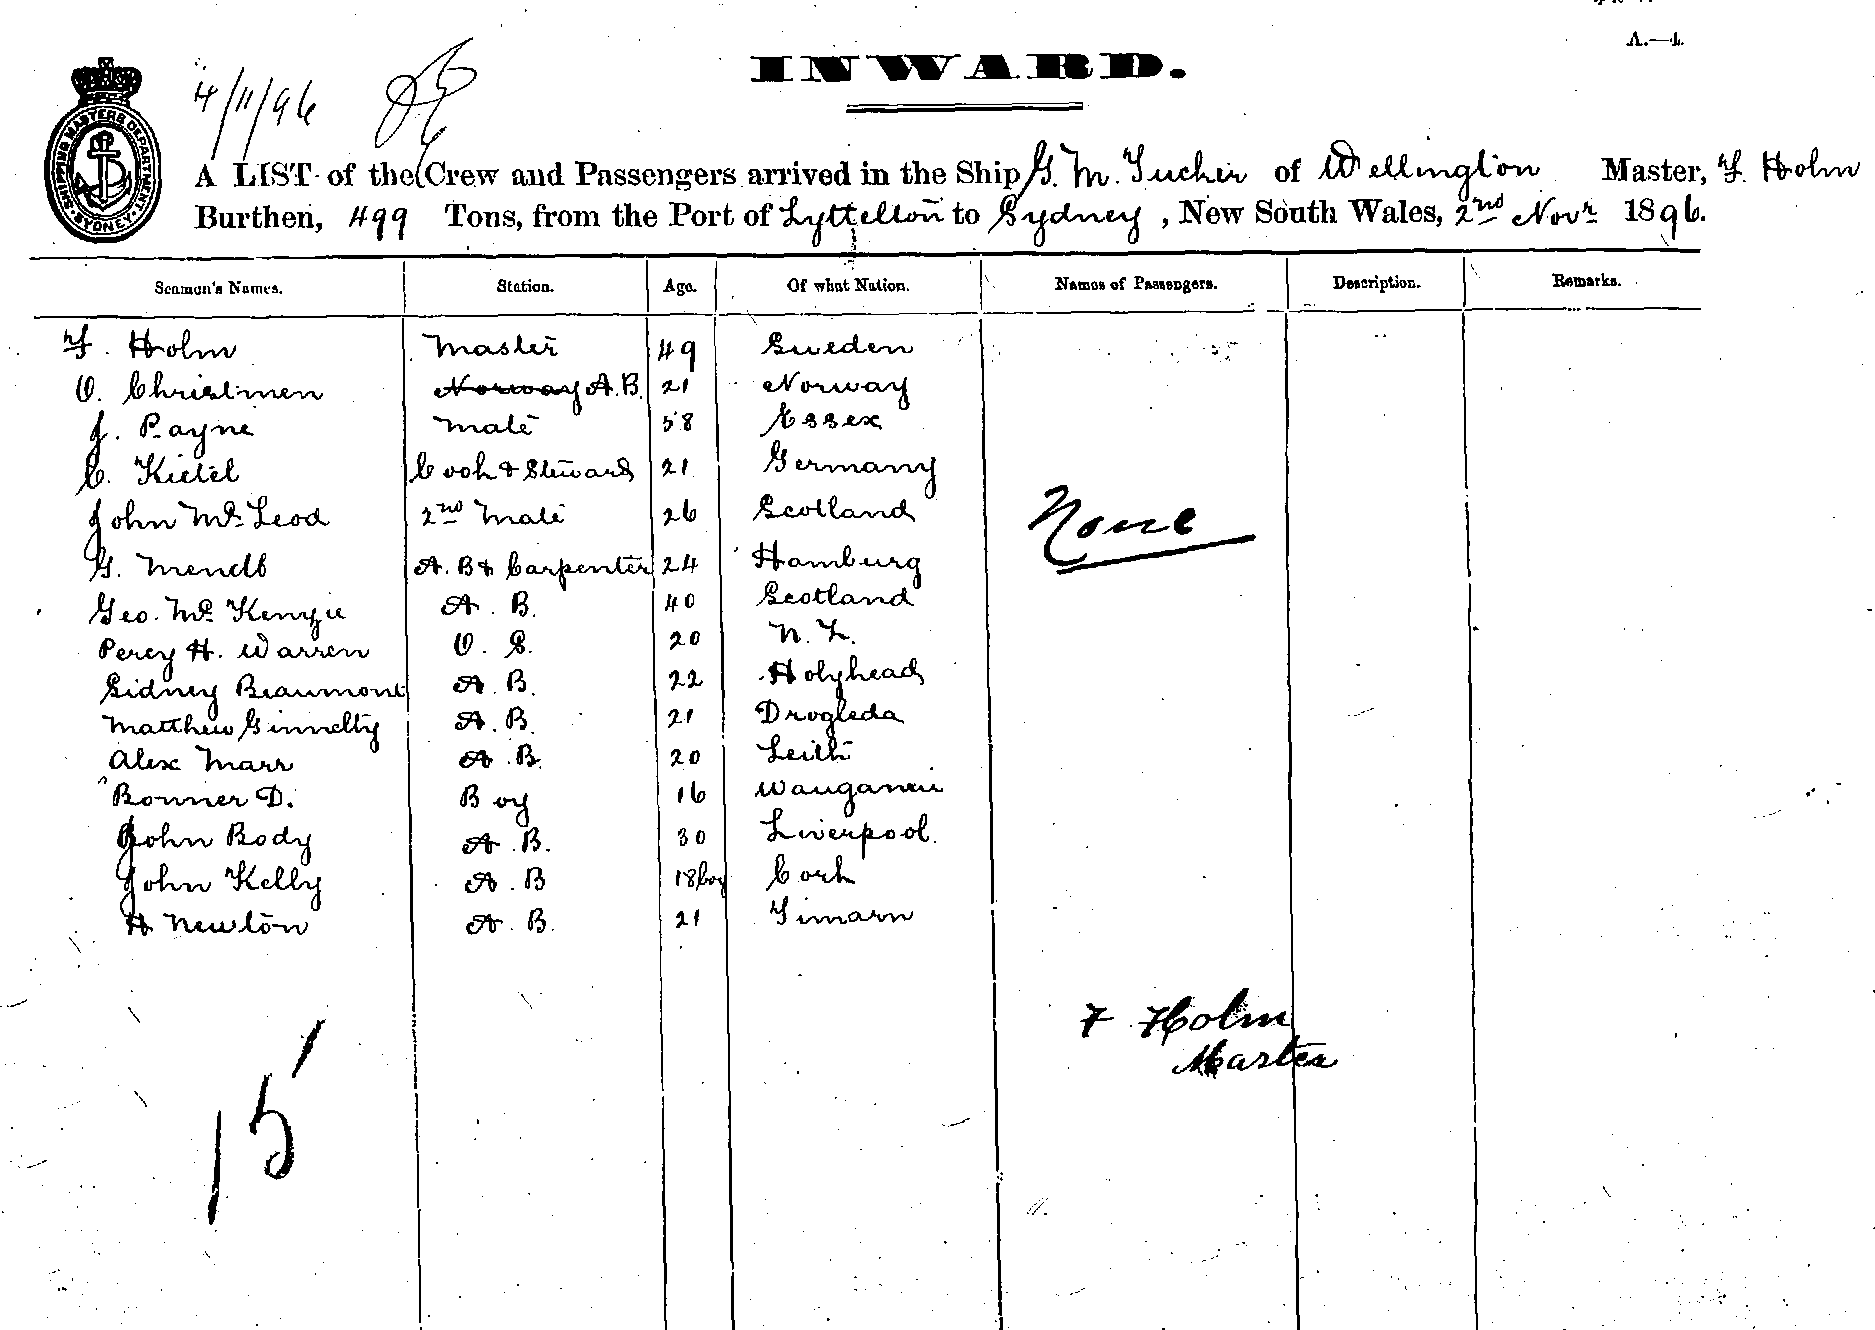 A.—4.
INWARD.
SHIPPING MASTERS DEPARTMENT. SYDNEY.
4/11/96
A LIST of the Crew and Passengers arrived in the Ship G. M. Tucker of Wellington Master, F. Holm
Burthen, 499 Tons, from the Port of Lyttelton to Sydney, New South Wales, 2nd Novr 1896.
Seamen's Names. Station. Age. Of what Nation. Names of Passengers. Description. Remarks.
F. Holm Master 49 Sweden
O. Christmen Norway A.B. 21 Norway
J. Payne Mate 58 Essex
C. Kietel Cook & Steward 21 Germany
John McLeod 2nd Mate 26 Scotland
None
G. Mendt A.B & Carpenter 24 Hamburg
Geo. McKenzie A.B. 40 Scotland
Percy H. Warren O.S. 20 N.Z.
Sidney Beaumont A.B. 22 Holyhead
Matthew Ginnelty A.B. 21 Drogleda
Alex Marr A.B. 20 Leith
Bonner D. Boy 16 Wanganui
John Body A.B. 30 Liverpool.
John Kelly A.B 18 boy Cork
H Newton A.B. 21 Timarn
F Holm
Master
15